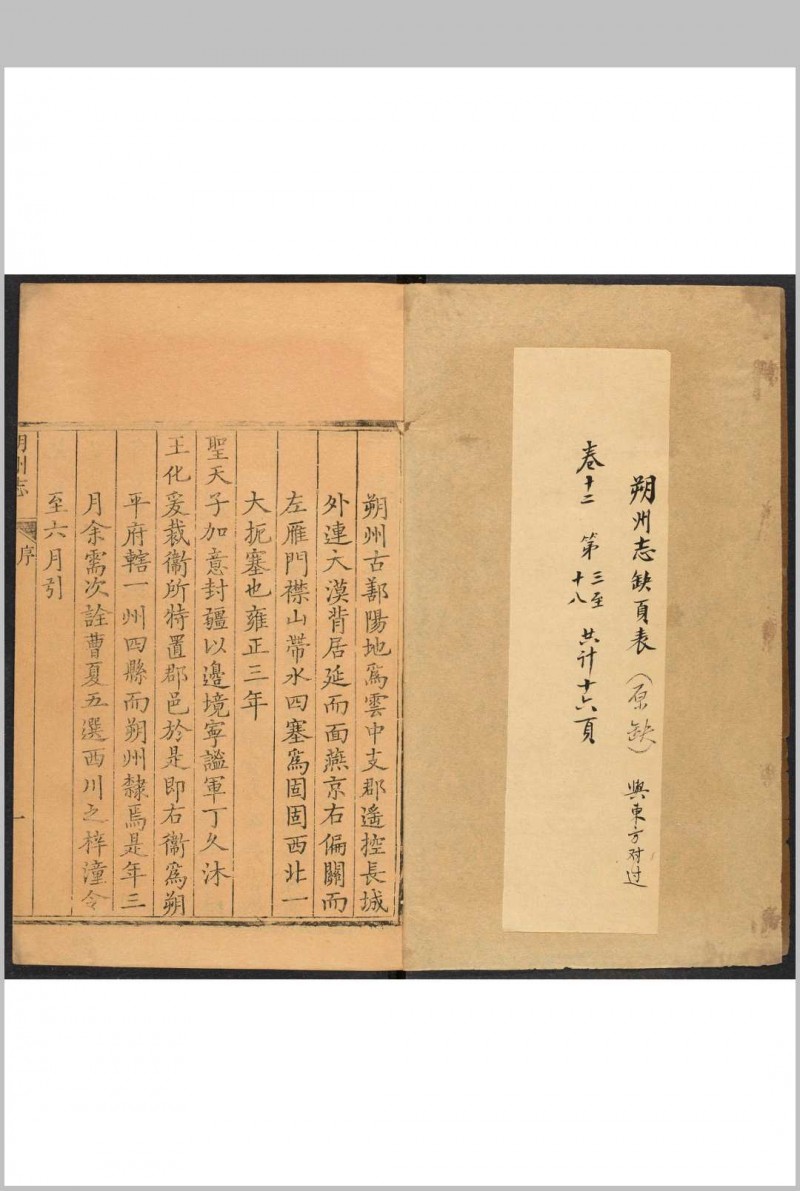 朔州志缺頁表（原缺）與東方对过
卷十二 第三至十八 共计十六頁
朔州古鄯陽地爲雲中支郡遥控長城
外連大漠背居延而面燕京右偏關而
左雁門襟山帶水四塞爲固固西北一
大扼塞也雍正三年
聖天子加意封疆以邊境寧謐軍丁久沐
王化爰裁衞所特置郡邑於是即右衞爲朔
平府轄一州四縣而朔州隸焉是年三
月余需次詮曹夏五選西川之梓潼令
至六月引
朔州志
序
一